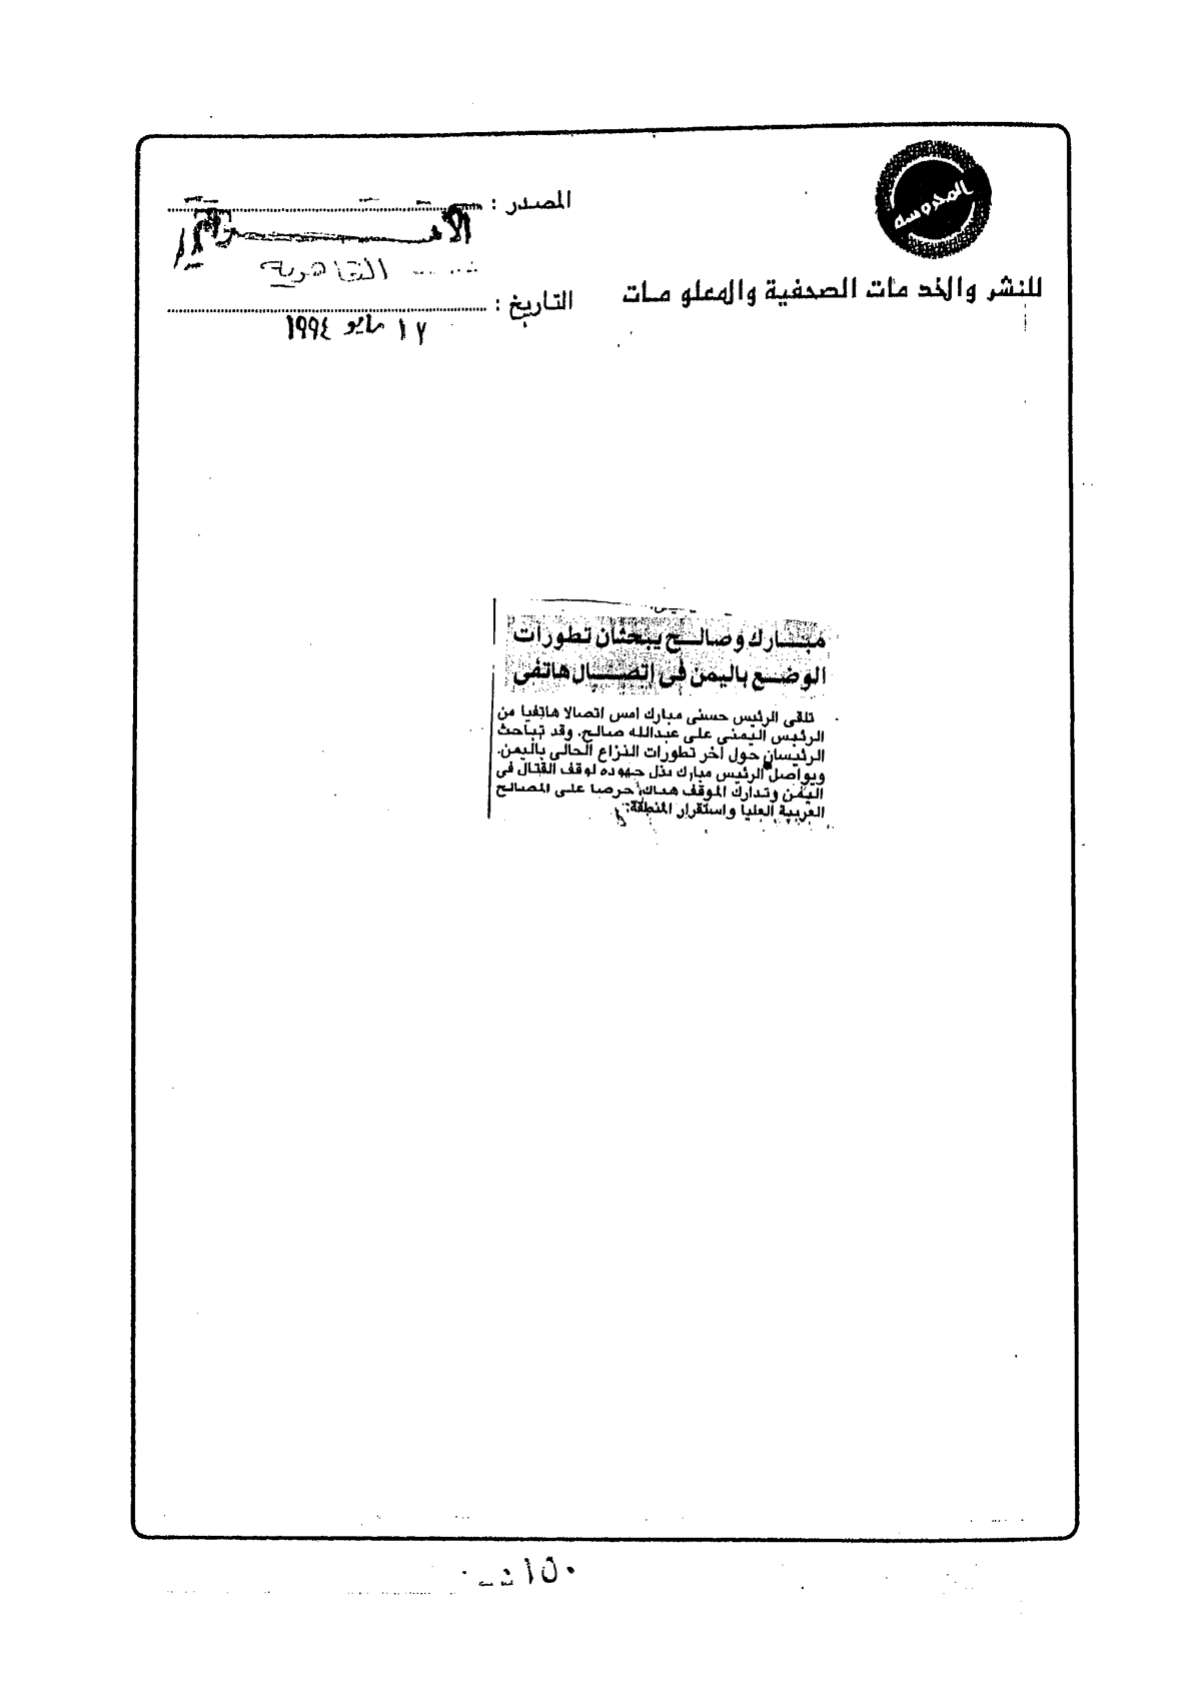 المحروسة
للنشر والخدمات الصحفية والمعلومات
المصدر :
الأهرام
القاهرية
التاريخ :
١٢ مايو ١٩٩٤
مبارك وصالح يبحثان تطورات
الوضع باليمن فى اتصال هاتفى
تلقى الرئيس حسنى مبارك امس اتصالا هاتفيا من
الرئيس اليمنى على عبدالله صالح. وقد تباحث
الرئيسان حول اخر تطورات النزاع الحالى باليمن.
ويواصل الرئيس مبارك بذل جهوده لوقف القتال فى
اليمن وتدارك الموقف هناك، حرصا على المصالح
العربية العليا واستقرار المنطقة.